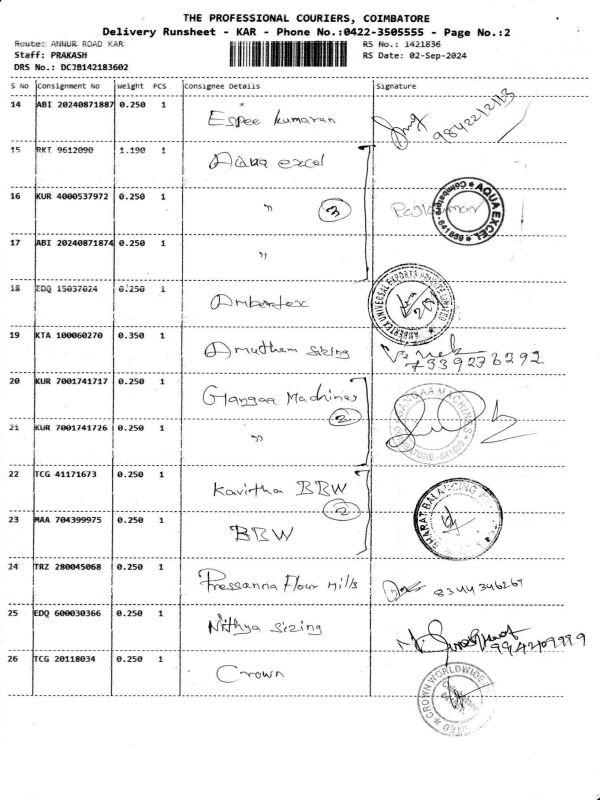 THE PROFESSIONAL COURIERS, COIMBATORE
Delivery Runsheet - KAR - Phone No.:0422-3505555 - Page No.:2
Route: ANNUR ROAD KAR
Staff: PRAKASH
DRS No.: DCJB142183602
RS No.: 1421836
RS Date: 02-Sep-2024
S No Consignment No Weight PCS Consignee Details Signature
14 ABI 20240871887 0.250 1 Espee Kumaran 9842212113
15 RKT 9612090 1.190 1 Aqua excel
16 KUR 4000537972 0.250 1 " 3 AQUA EXCEL Coimbatore - 641659
17 ABI 20240871874 0.250 1 "
18 EDQ 15037024 0.250 1 Ambertex AMBERTEX UNIVERSAL EXPORTS PRIVATE LIMITED
19 KTA 100060270 0.350 1 Amutham Sizing 7339278292
20 KUR 7001741717 0.250 1 Gangaa Machines 2 GANGAA MACHINES COIMBATORE - 641659
21 KUR 7001741726 0.250 1 "
22 TCG 41171673 0.250 1 Kavitha BBW 2
23 MAA 704399975 0.250 1 BBW BHARAT BALANCING
24 TRZ 280045068 0.250 1 Pressanna Flour Mills 8344346267
25 EDQ 600030366 0.250 1 Nithya Sizing 9942209999
26 TCG 20118034 0.250 1 Crown CROWN WORLDWIDE